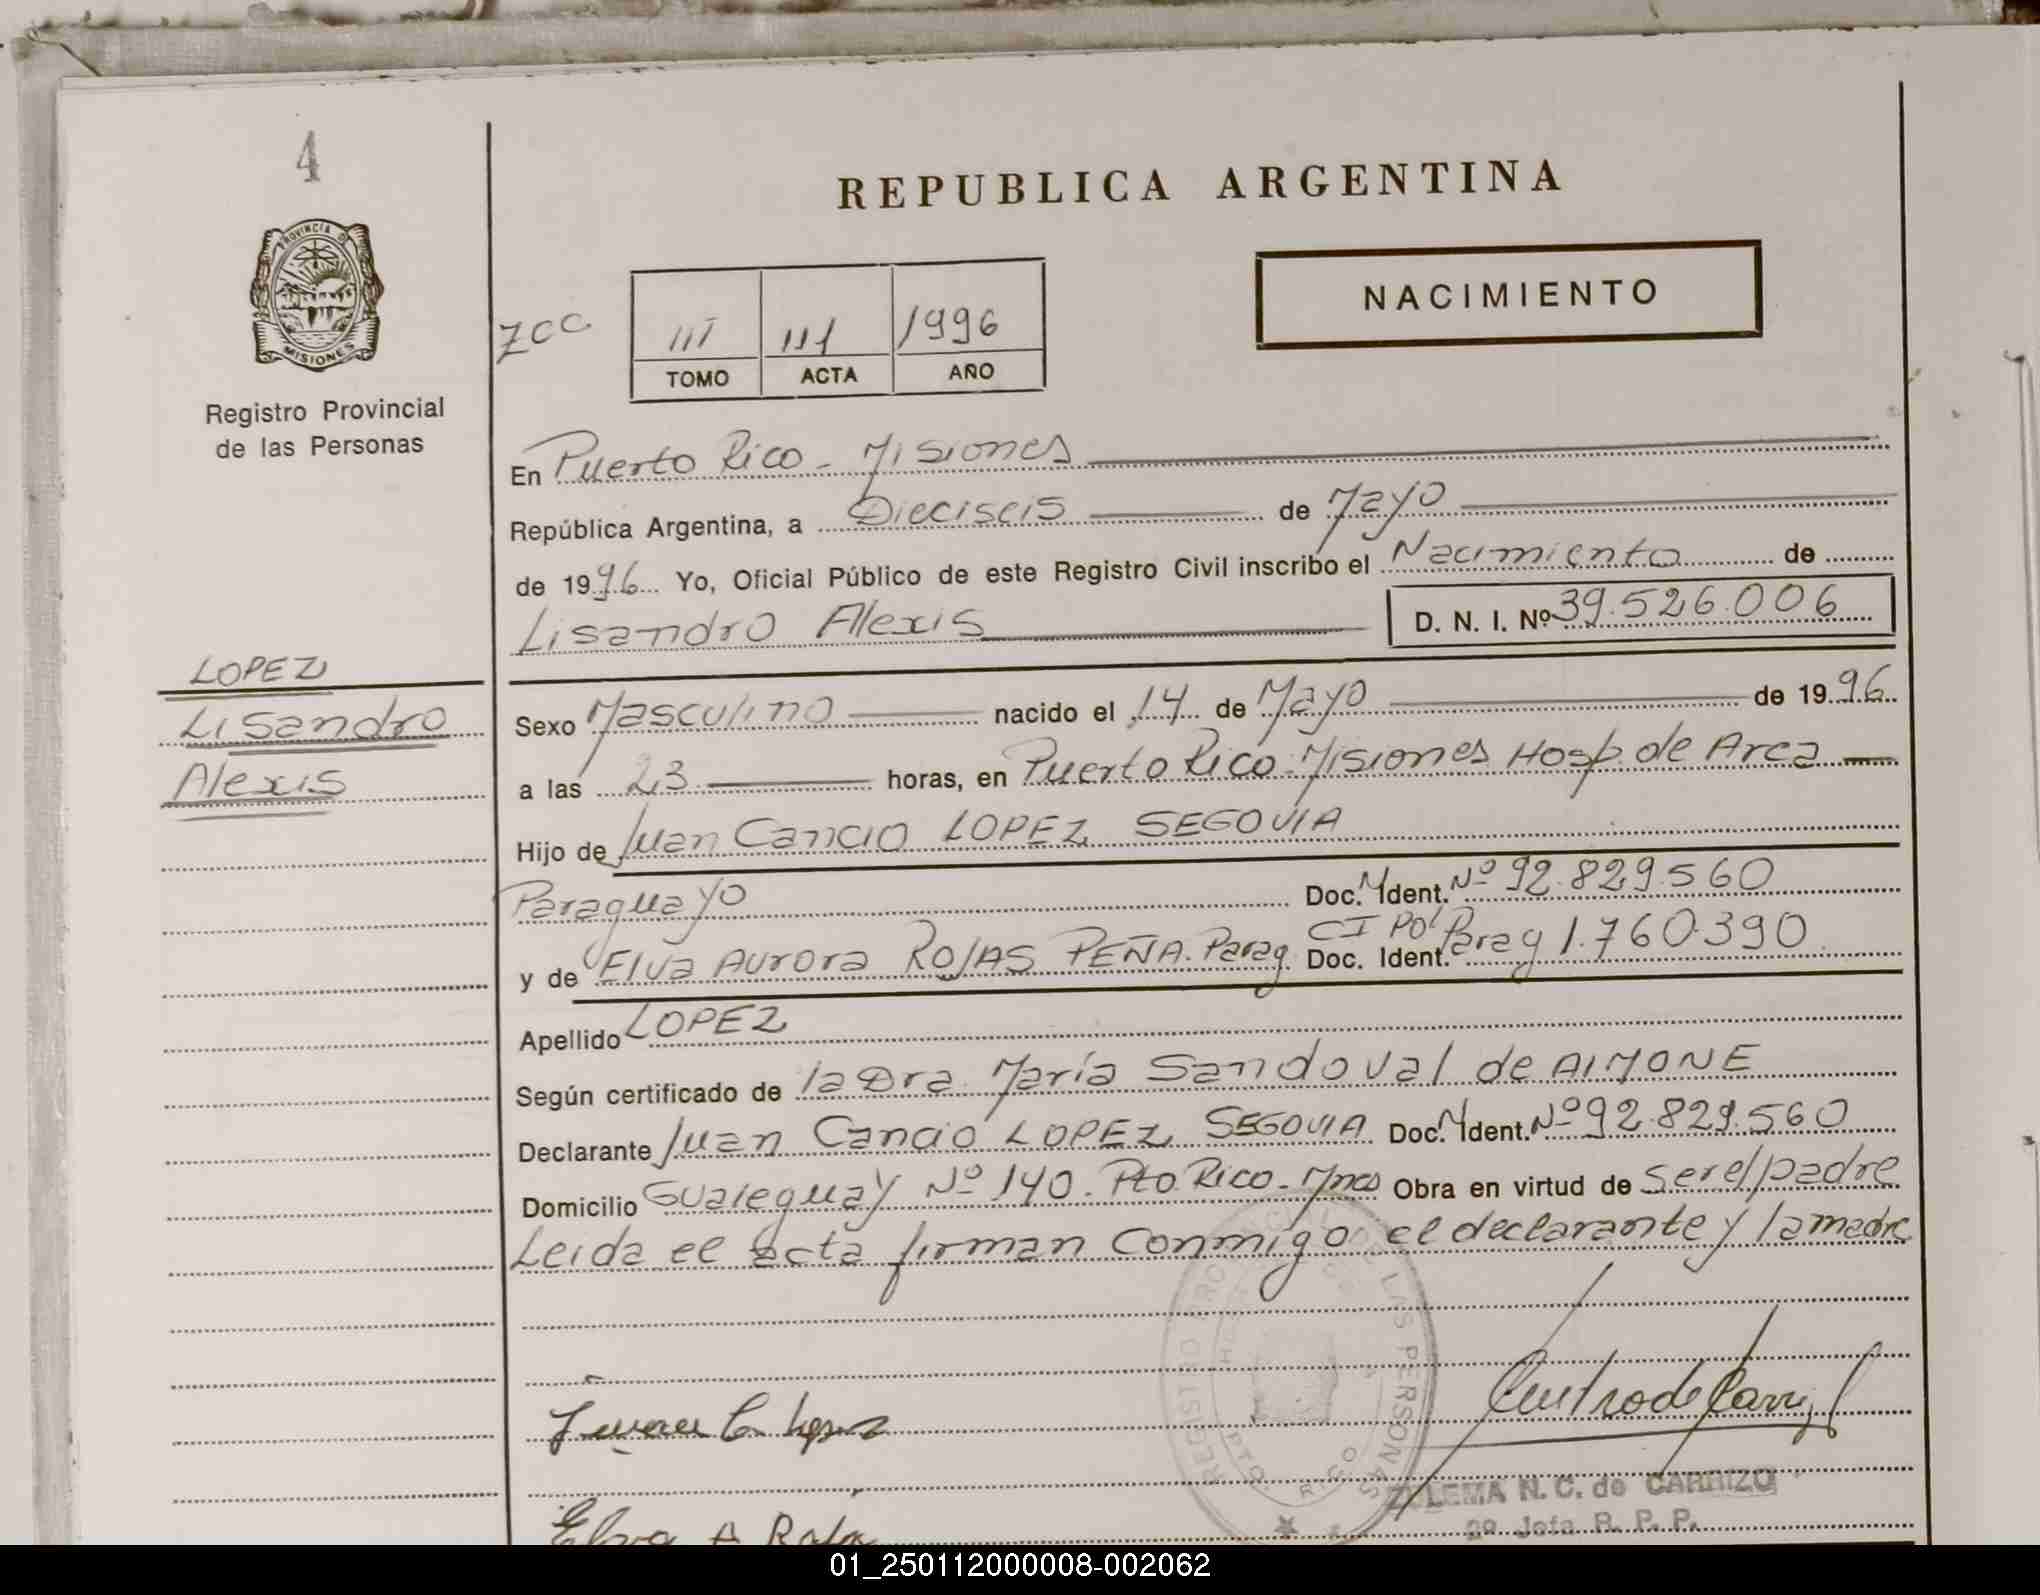 4
REPUBLICA ARGENTINA
PROVINCIA D
MISIONES
NACIMIENTO
ZCC
III 111 1996
TOMO ACTA AÑO
Registro Provincial
de las Personas
En Puerto Rico - Misiones
República Argentina, a Dieciseis de Mayo
de 1996 Yo, Oficial Público de este Registro Civil inscribo el Nacimiento de
Lisandro Alexis D. N. I. Nº 39.526.006
LOPEZ
Lisandro
Alexis
Sexo Masculino nacido el 14 de Mayo de 1996
a las 23 horas, en Puerto Rico - Misiones Hosp. de Area
Hijo de Juan Cancio LOPEZ SEGOVIA
Paraguayo Doc. N Ident. Nº 92.829.560
y de Elva Aurora ROJAS PEÑA. Parag Doc. Ident. CI Pol Parag 1.760.390
Apellido LOPEZ
Según certificado de la Dra. María Sandoval de AIMONE
Declarante Juan Cancio LOPEZ SEGOVIA Doc. N Ident. Nº 92.829.560
Domicilio Gualeguay Nº 140. Pto Rico - Mnes Obra en virtud de ser el padre
Leida el acta firman conmigo el declarante y la madre
REGISTRO PROVINCIAL DE LAS PERSONAS
PTO. RICO
Juan C. Lopez
Elva A Roja
ZULEMA N. C. de CARRIZO
2º Jefa R. P. P.
01_250112000008-002062